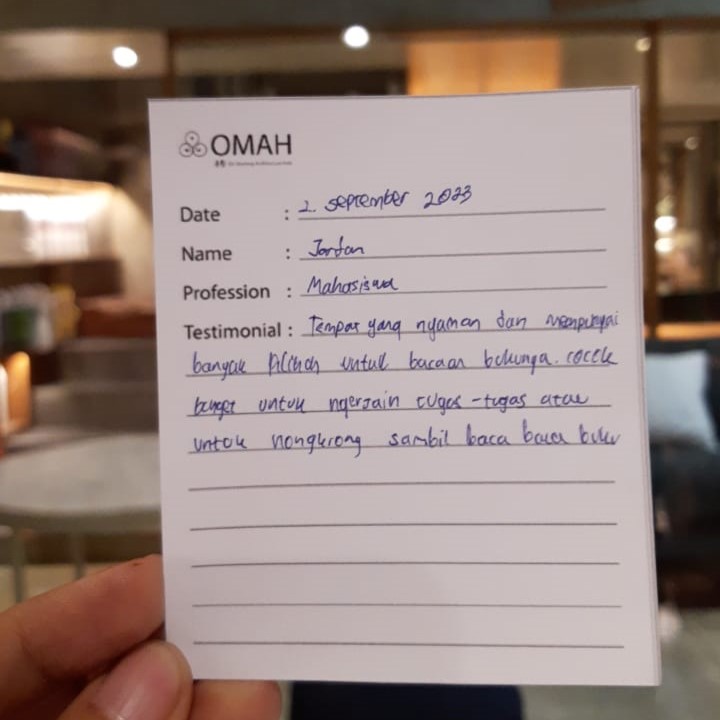 OMAH
Date : 2. September 2023
Name : Jordan
Profession : Mahasiswa
Testimonial : Tempat yang nyaman dan mempunyai
banyak pilihan untuk bacaan bukunya. cocok
banget untuk ngerjain tugas-tugas atau
untuk nongkrong sambil baca baca buku